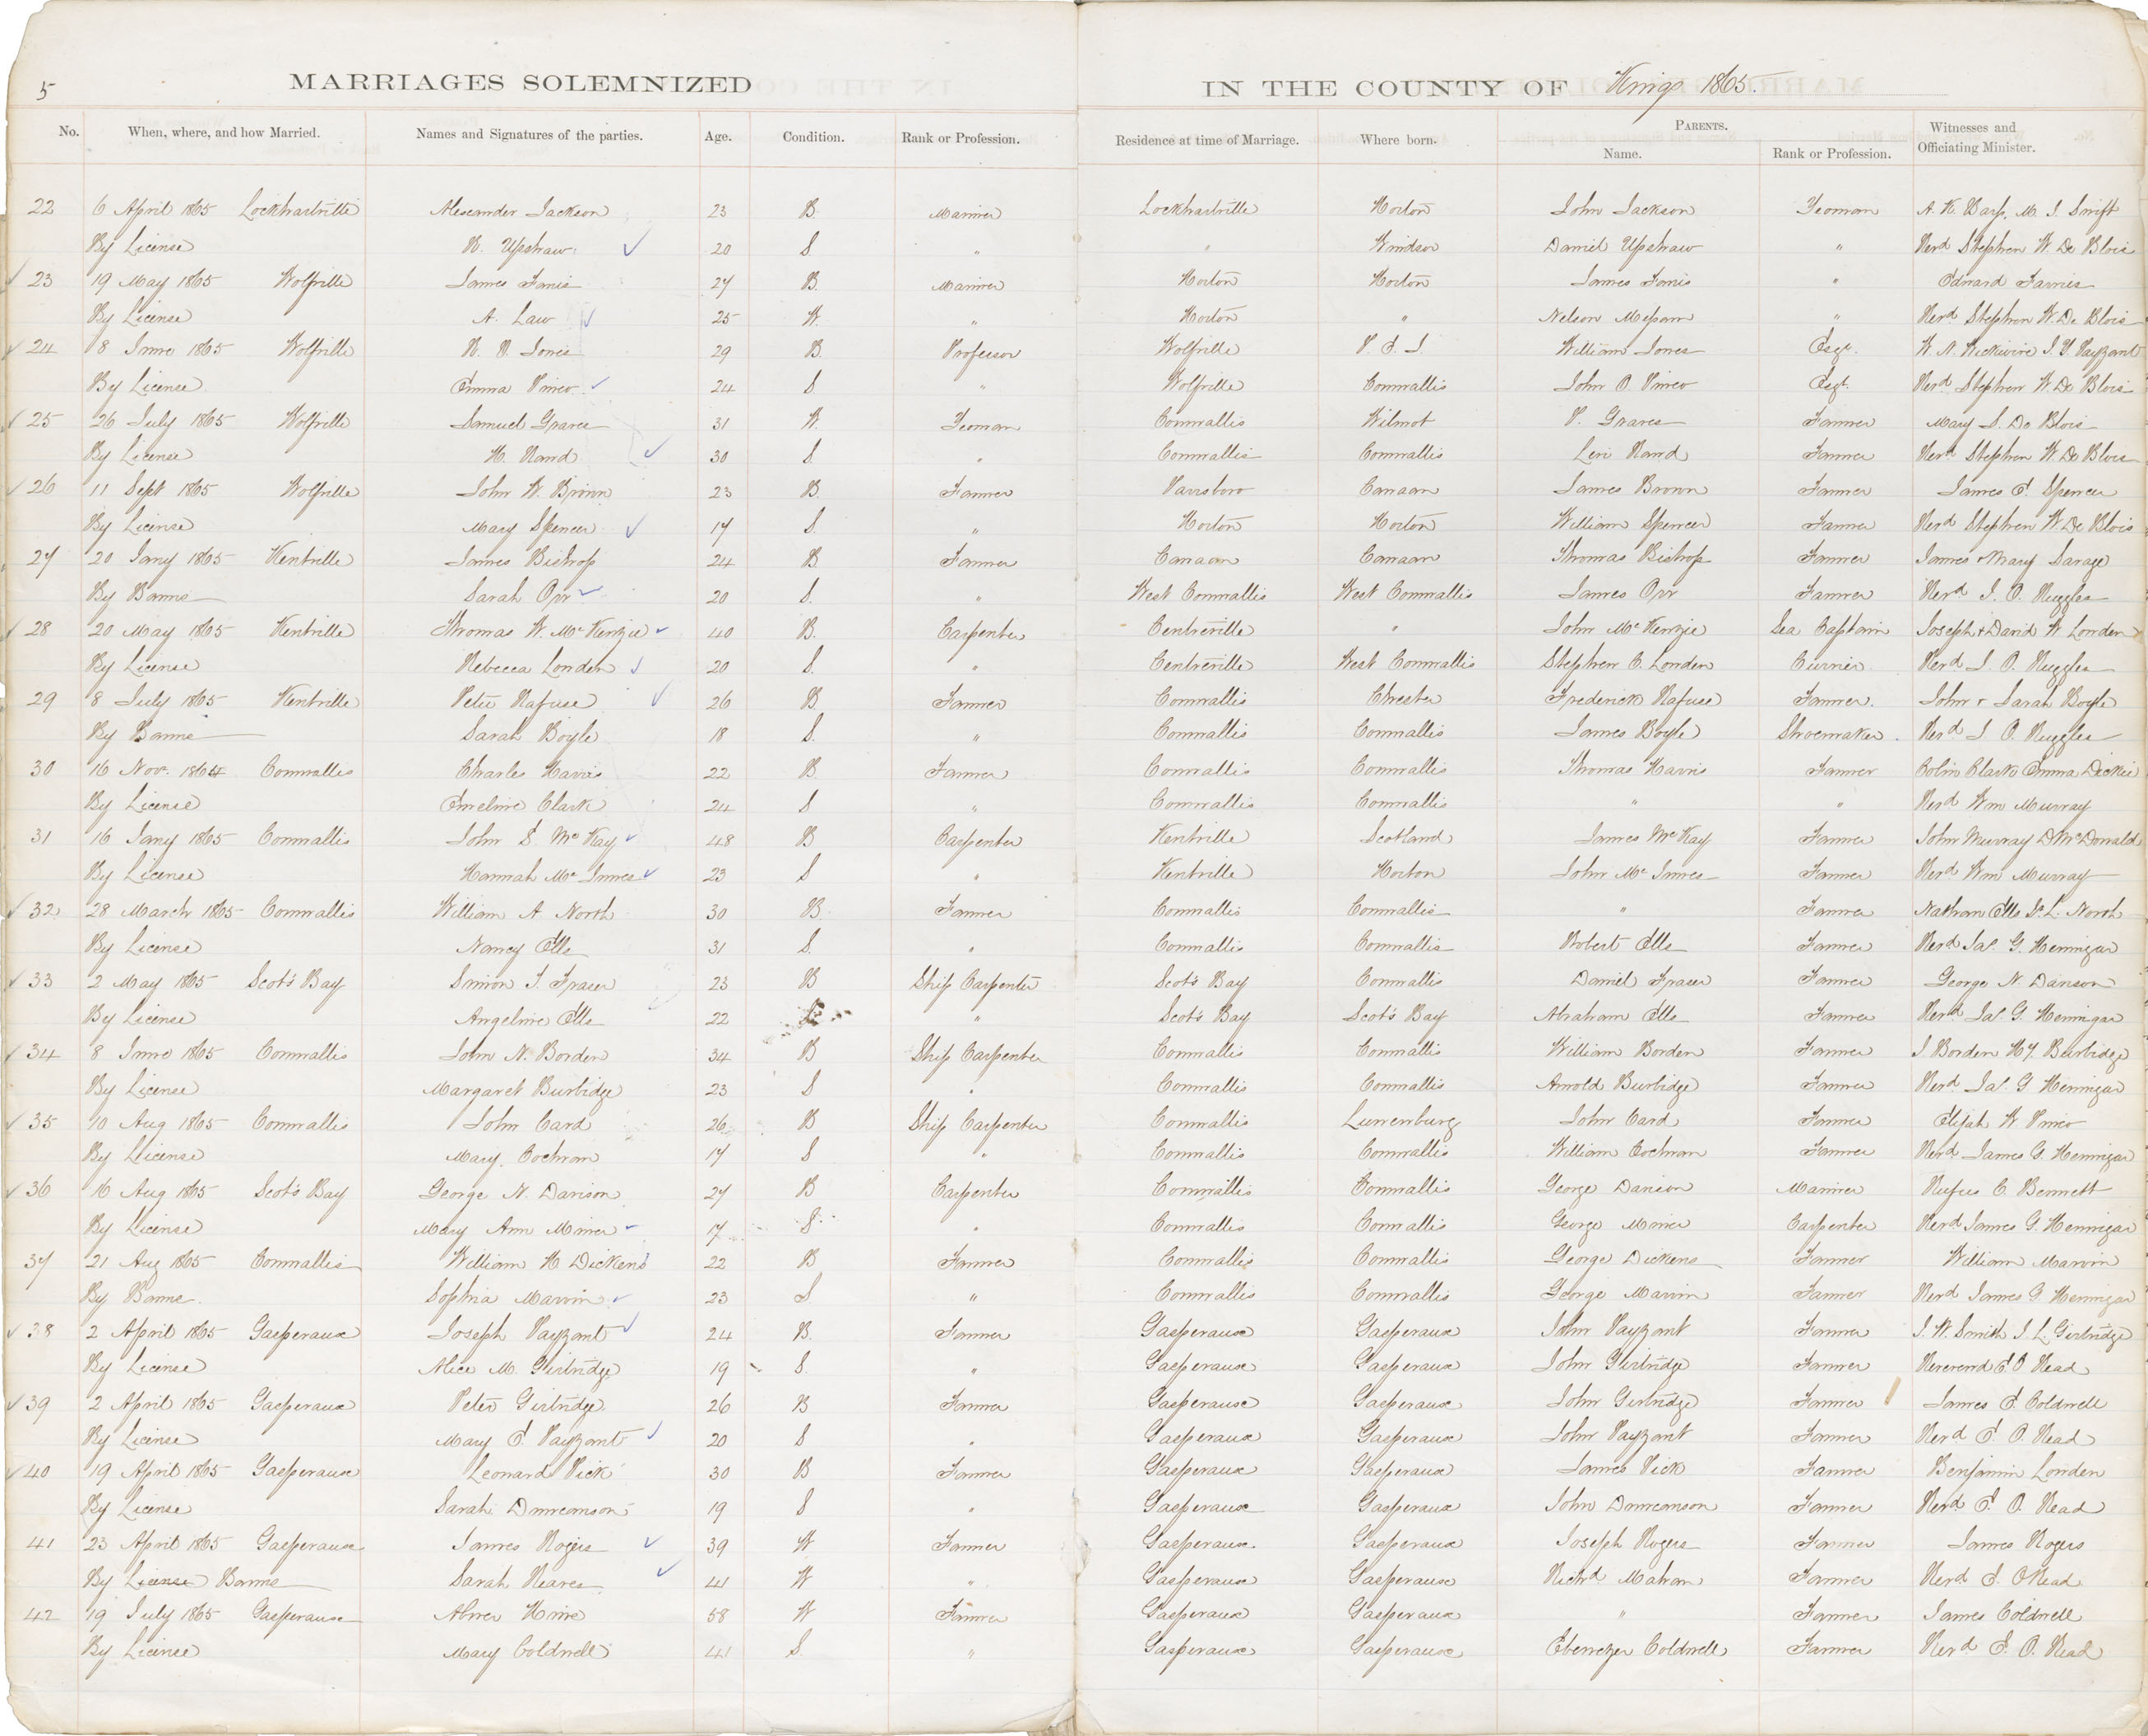 5
MARRIAGES SOLEMNIZED IN THE COUNTY OF Kings 1865.
No. When, where, and how Married. Names and Signatures of the parties. Age. Condition. Rank or Profession. Residence at time of Marriage. Where born. PARENTS. Name. Rank or Profession. Witnesses and Officiating Minister.
22 6 April 1865 Lockhartville Alexander Jackson 23 B. Mariner Lockhartville Horton John Jackson Yeoman A. K. Barss, M. J. Swift
By License R. Upshaw 20 S. " " Windsor Daniel Upshaw " Revd Stephen W. De Blois
23 19 May 1865 Wolfville James Farris 27 B. Mariner Horton Horton James Farris " Edward Farries
By License A. Law 25 W. " Horton " Nelson " Revd Stephen W. De Blois
24 8 June 1865 Wolfville R. V. Jones 29 B. Professor Wolfville P. E. I. William Jones Esqr. W. N. Wickwire J. Y. Payzant
By License Emma Pineo 24 S. " Wolfville Cornwallis John O. Pineo Esqr. Revd Stephen W De Blois
25 26 July 1865 Wolfville Samuel Graves 31 W. Yeoman Cornwallis Wilmot P. Graves Farmer Mary S. De Blois
By License H. Rand 30 S. " Cornwallis Cornwallis Levi Rand Farmer Revd Stephen W De Blois
26 11 Sept 1865 Wolfville John W. Brown 23 B. Farmer Parrsboro Canaan James Brown Farmer James E. Spencer
By License Mary Spencer 17 S. " Horton Horton William Spencer Farmer Revd Stephen W. De Blois
27 20 Jany 1865 Kentville James Bishop 24 B Farmer Canaan Canaan Thomas Bishop Farmer James & Mary Savage
By Banns Sarah Orr 20 S. " West Cornwallis West Cornwallis James Orr Farmer Revd J. O. Ruggles
28 20 May 1865 Kentville Thomas W. Mc Kenzie 40 B. Carpenter Centreville " John Mc Kenzie Sea Captain Joseph & David W Londen
By License Rebecca Londen 20 S. " Centreville West Cornwallis Stephen C. Londen Currier Revd J. O. Ruggles
29 8 July 1865 Kentville Peter Rafuse 26 B. Farmer Cornwallis Chester Frederick Rafuse Farmer. John & Sarah Boyle
By Banns Sarah Boyle 18 S. " Cornwallis Cornwallis James Boyle Shoemaker Revd J O. Ruggles
30 16 Novr. 1864 Cornwallis Charles Harris 22 B Farmer Cornwallis Cornwallis Thomas Harris Farmer Colin Clark Emma Dickie
By License Emeline Clark 24 S " Cornwallis Cornwallis " " Revd Wm Murray
31 16 Jany 1865 Cornwallis John S. Mc Kay 48 B Carpenter Kentville Scotland James Mc Kay Farmer John Murray D McDonald
By License Hannah Mc Innes 23 S " Kentville Horton John Mc Innes Farmer Revd Wm Murray
32 28 March 1865 Cornwallis William A North 30 B. Farmer Cornwallis Cornwallis " Farmer Nathan Ells L. North
By License Nancy Ells 31 S. " Cornwallis Cornwallis Robert Ells Farmer Revd Jas. G. Hennigar
33 2 May 1865 Scot's Bay Simon J. Fraser 23 B Ship Carpenter Scot's Bay Cornwallis Daniel Fraser Farmer George N. Davison
By License Angeline Ells 22 S " Scot's Bay Scot's Bay Abraham Ells Farmer Revd Jas G. Hennigar
34 8 June 1865 Cornwallis John N. Borden 34 B Ship Carpenter Cornwallis Cornwallis William Borden Farmer J Borden Hy. Burbidge
By License Margaret Burbidge 23 S " Cornwallis Cornwallis Arnold Burbidge Farmer Revd Jas. G Hennigar
35 10 Aug 1865 Cornwallis John Card 26 B Ship Carpenter Cornwallis Lunenburg John Card Farmer Elijah W Pineo
By License Mary Cochran 17 S " Cornwallis Cornwallis William Cochran Farmer Revd James G. Hennigar
36 16 Aug 1865 Scot's Bay George N. Davison 27 B Carpenter Cornwallis Cornwallis George Davison Mariner Rufus C. Bennett
By License Mary Ann Miner 17 S " Cornwallis Cornwallis George Miner Carpenter Revd James G. Hennigar
37 21 Aug 1865 Cornwallis William H Dickens 22 B Farmer Cornwallis Cornwallis George Dickens Farmer William Marvin
By Banns Sophia Marvin 23 S " Cornwallis Cornwallis George Marvin Farmer Revd James G. Hennigar
38 2 April 1865 Gasperaux Joseph Payzant 24 B. Farmer Gasperaux Gasperaux John Payzant Farmer J. W. Smith J. L. Girtridge
By License Alice M. Girtridge 19 S. " Gasperaux Gasperaux John Girtridge Farmer Reverend E O Read
39 2 April 1865 Gasperaux Peter Girtridge 26 B Farmer Gasperaux Gasperaux John Girtridge Farmer James E. Coldwell
By License Mary E. Payzant 20 S " Gasperaux Gasperaux John Payzant Farmer Revd E O. Read
40 19 April 1865 Gasperaux Leonard Pick 30 B Farmer Gasperaux Gasperaux James Pick Farmer Benjamin Londen
By License Sarah Duncanson 19 S " Gasperaux Gasperaux John Duncanson Farmer Revd E. O. Read
41 23 April 1865 Gasperaux James Rogers 39 W Farmer Gasperaux Gasperaux Joseph Rogers Farmer James Rogers
By License Banns Sarah Neares 41 W " Gasperaux Gasperaux Richd Mahan Farmer Revd E. O Read
42 19 July 1865 Gasperaux Abner 58 W Farmer Gasperaux Gasperaux " Farmer James Coldwell
By License Mary Coldwell 41 S. " Gasperaux Gasperaux Ebenezer Coldwell Farmer Revd E. O. Read